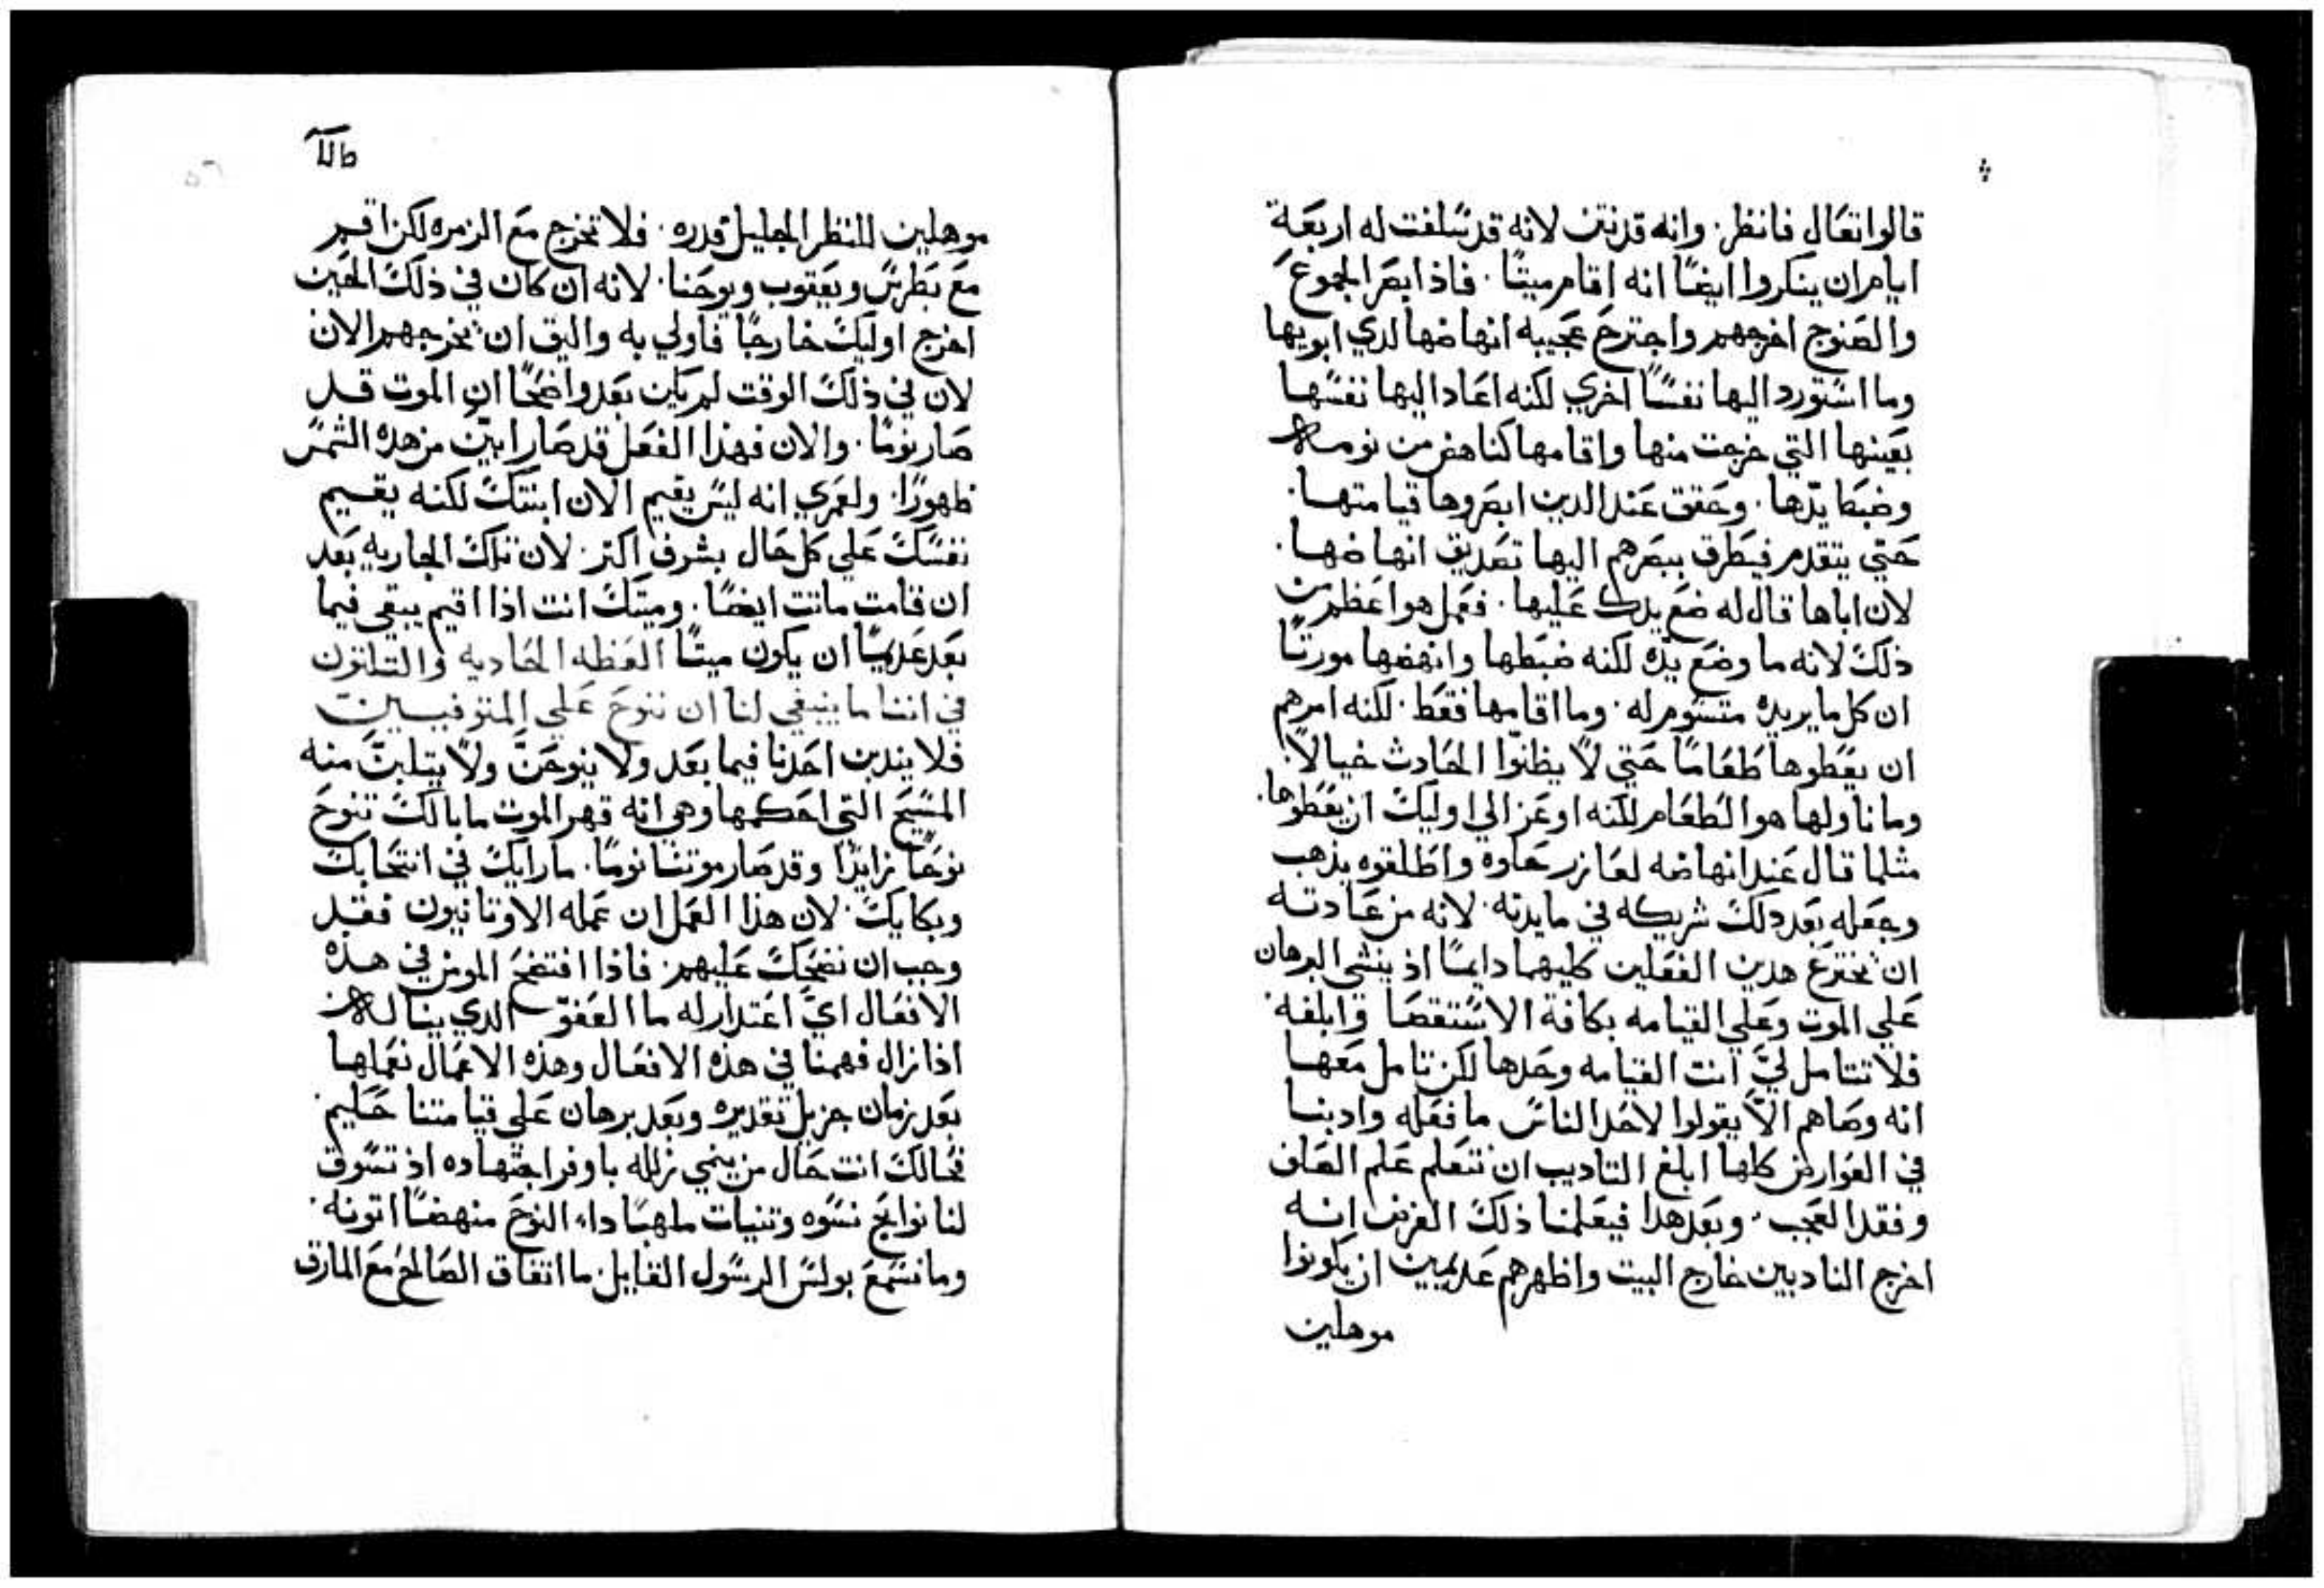 قالوا تعال فانظر. وانه قد نتن لانه قد سلفت له اربعة
ايام ان ينكروا ايضًا انه اقام ميتًا. فاذ ابصر الجموع
والصنوج اخرجهم واجترح عجيبه انهاضها لدي ابويها
وما استورد اليها نفسًا اخري لكنه اعاد اليها نفسها
بعينها التي خرجت منها واقامها كناهض من نومه
وضبط يدها. وحقق عند الدين ابصروها قيامتها.
حتي يتقدم فيطرق ببصرهم اليها تصديق انهاضها.
لان اباها قال له ضع يدك عليها. فعمل هو اعظم من
ذلك لانه ما وضع يده لكنه ضبطها وانهضها مورتًا
ان كل ما يريده متسوم له. وما اقامها فقط. لكنه امرهم
ان يعطوها طعامًا حتي لا يظنوا الحادث خيالاً.
وما ناولها هو الطعام لكنه اوعز الي اوليك ان يعطوها.
مثلما قال عند انهاضه لعازر حلوه واطلقوه يذهب
وجعله بعد دلك شريكه في مايدته. لانه من عادته
ان يخترع هدين الفعلين كليهما دايمًا اذ ينشي البرهان
علي الموت وعلي القيامه بكافة الاستقصا وابلغه.
فلا تتامل لي انت القيامه وحدها لكن تامل معها
انه وصاهم الاّ يقولوا لاحد الناس ما فعله وادبنا
في العوارض كلها ابلغ التاديب ان نتعلم علم الصلف
وفقد العجب. وبعد هدا فيعلمنا ذلك الغرض انه
اخرج النادبين خارج البيت واظهرهم عديمين ان يكونوا
موهلين
موهلين للنظر الجليل قدره. فلا تخرج مع الزمره لكن اقم
مع بطرس ويعقوب ويوحنا. لانه ان كان في ذلك الحين
اخرج اوليك خارجًا فاولي به واليق ان يخرجهم الان
لان في ذلك الوقت لم يكن بعد واضحًا ان الموت قد
صار نومًا. والان فهذا الفعل قد صار ابين من هده الشمس
ظهورًا. ولعمري انه ليس يقيم الان ابنتك لكنه يقيم
نفسك علي كل حال بشرف اكتر. لان تلك الجاريه بعد
ان قامت ماتت ايضًا. وميتك انت اذا اقيم يبقي فيما
بعد عديمًا ان يكون ميتًا العظه الحاديه والتلتون
في اننا ما ينبغي لنا ان ننوح علي المتوفيين
فلا يندبن احدنا فيما بعد ولا ينوحنّ ولا يتلبنّ منه
المسيح التي احكمها وهي انه قهر الموت ما بالك تنوح
نوحًا زايدًا وقد صار موتنا نومًا. ما رايك في انتحابك
وبكايك. لان هذا العمل ان عمله الاوتانيون فقد
وجب ان نضحك عليهم. فاذا افتضح المومن في هذه
الافعال ايّ اعتدار له ما العفو الدي يناله من
اذا نزال فهمنا في هذه الافعال وهذه الاعمال نعملها
بعد زمان جزيل تقديره وبعد برهان علي قيامتنا حليم.
فحالك انت حال من ينمي زلله باوفر اجتهاده اذ تسوق
لنا نوايح نسوه وتنيات ملهبًا داء النوح منهضًا اتونه.
وما نسمع بولس الرسول القايل. ما اتفاق الصالح مع المارق